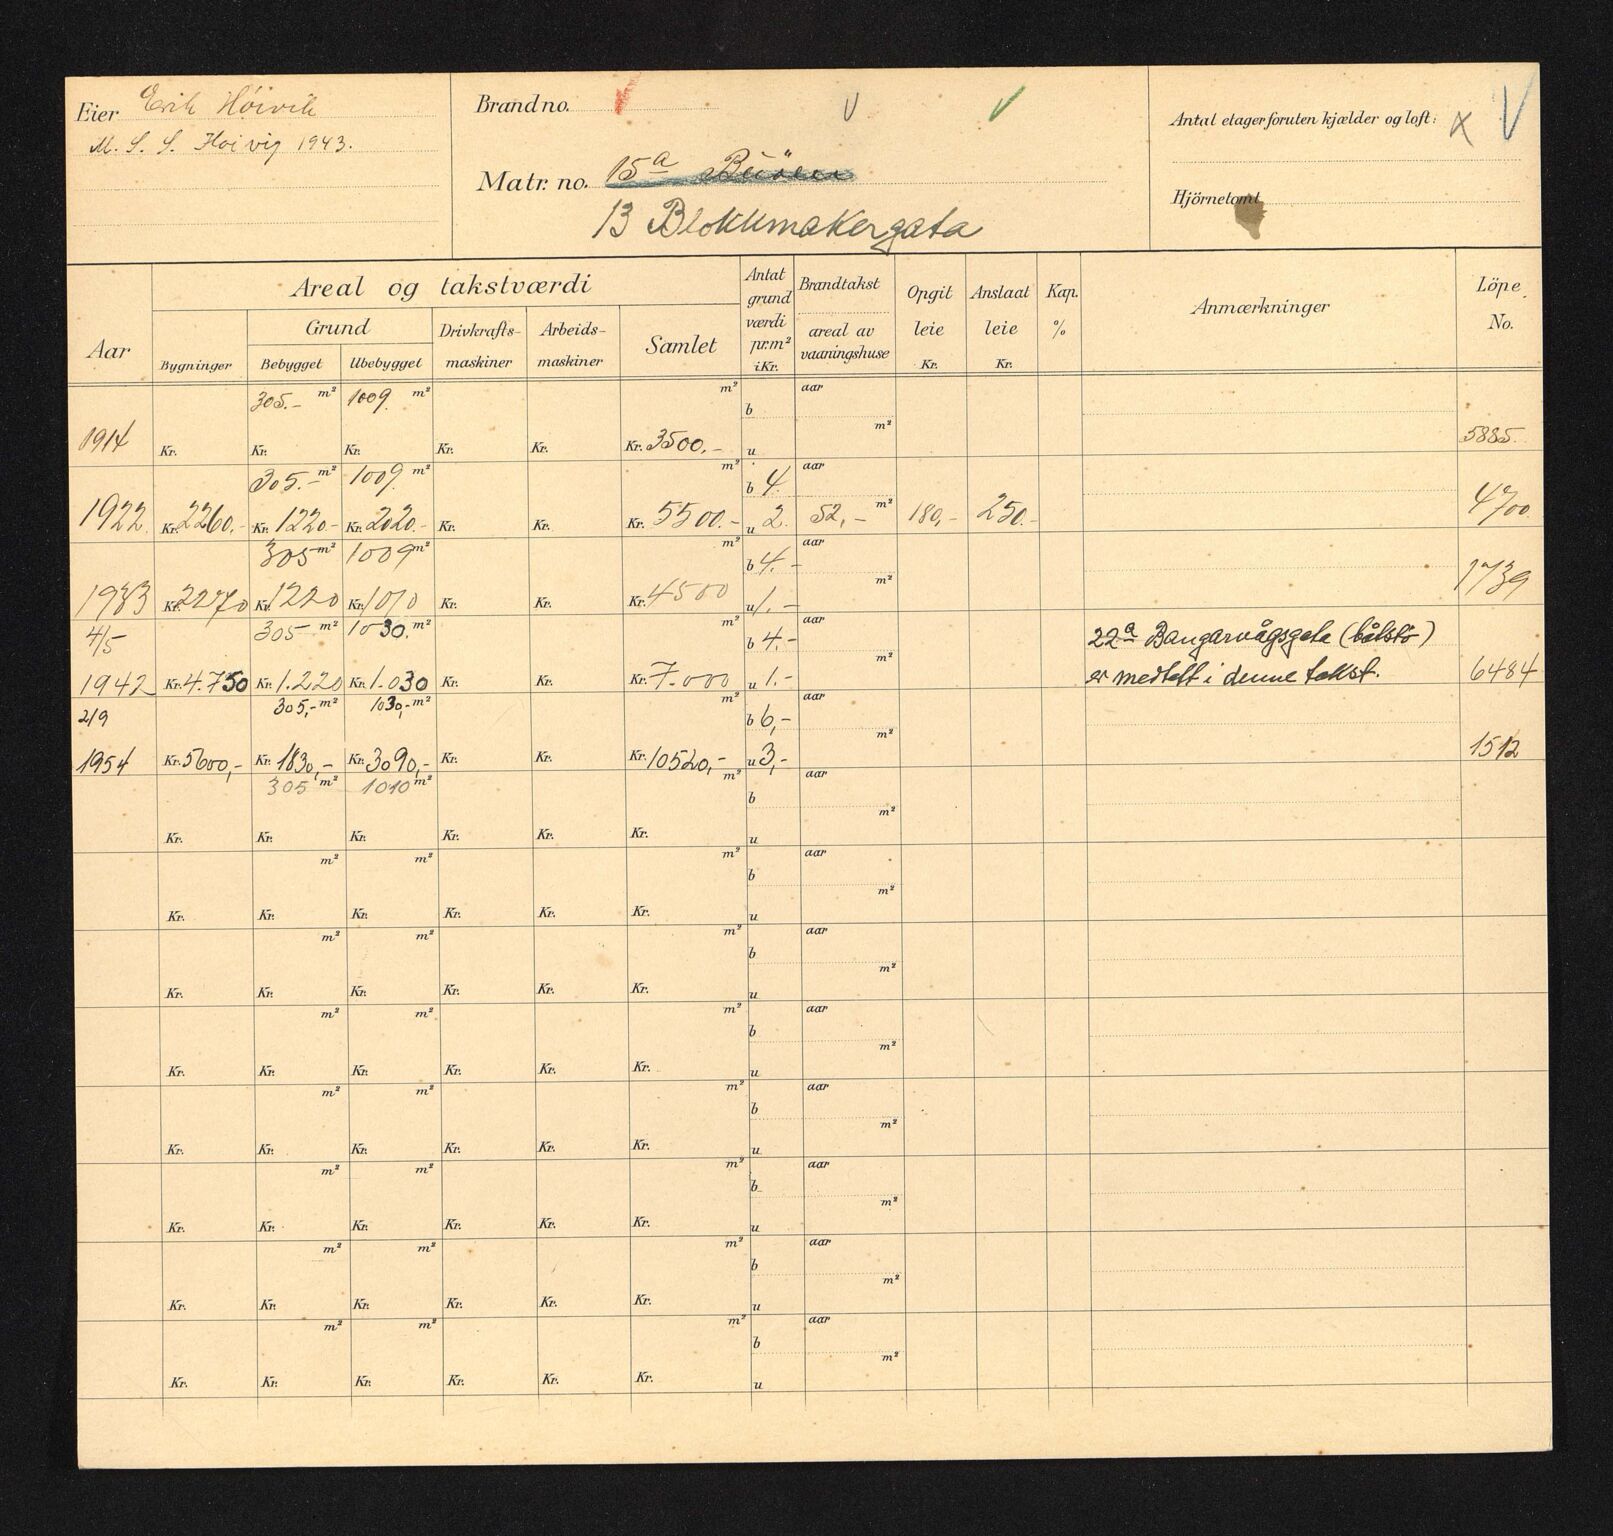 Eier Erik Høivik
M. S. S. Hoivig 1943.
Brand no.
Matr. no. 15a Buöen
13 Blokkmakergata
Antal etager foruten kjælder og loft: x V
Hjörnetomt
Aar
Areal og takstværdi
Grund
Bygninger
Bebygget
Ubebygget
Drivkrafts-
maskiner
Arbeids-
maskiner
Samlet
Antat
grund
værdi
pr.m²
i Kr.
Brandtakst
areal av
vaaningshuse
Opgit
leie
Kr.
Anslaat
leie
Kr.
Kap.
%
Anmærkninger
Löpe
No.
305.- m² 1009. m² m² b aar
1914 Kr. Kr. Kr. Kr. Kr. Kr. 3500.- u m² 5885.
305.- m² 1009. m² m² b 4. aar
1922. Kr. 2260.- Kr. 1220.- Kr. 2020.- Kr. Kr. Kr. 5500.- u 2. 52,- m² 180,- 250.- 4700
305 m² 1009 m² m² b 4.- aar
1933 Kr. 2270 Kr. 1220 Kr. 1010 Kr. Kr. Kr. 4500 u 1.- m² 1739
4/5 305 m² 1030. m² m² b 4.- aar 22a Bangarvågsgata (båtstö)
1942 Kr. 4.750 Kr. 1.220 Kr. 1.030 Kr. Kr. Kr. 7.000 u 1.- m² er medtatt i denne takst. 6484
2/9 305,- m² 1030,- m² m² b 6,- aar
1954 Kr. 5600,- Kr. 1830,- Kr. 3090,- Kr. Kr. Kr. 10520,- u 3,- m² 1512
305 m² 1010 m² m² b aar
Kr. Kr. Kr. Kr. Kr. Kr. u m²
m² m² m² b aar
Kr. Kr. Kr. Kr. Kr. Kr. u m²
m² m² m² b aar
Kr. Kr. Kr. Kr. Kr. Kr. u m²
m² m² m² b aar
Kr. Kr. Kr. Kr. Kr. Kr. u m²
m² m² m² b aar
Kr. Kr. Kr. Kr. Kr. Kr. u m²
m² m² m² b aar
Kr. Kr. Kr. Kr. Kr. Kr. u m²
m² m² m² b aar
Kr. Kr. Kr. Kr. Kr. Kr. u m²
m² m² m² b aar
Kr. Kr. Kr. Kr. Kr. Kr. u m²